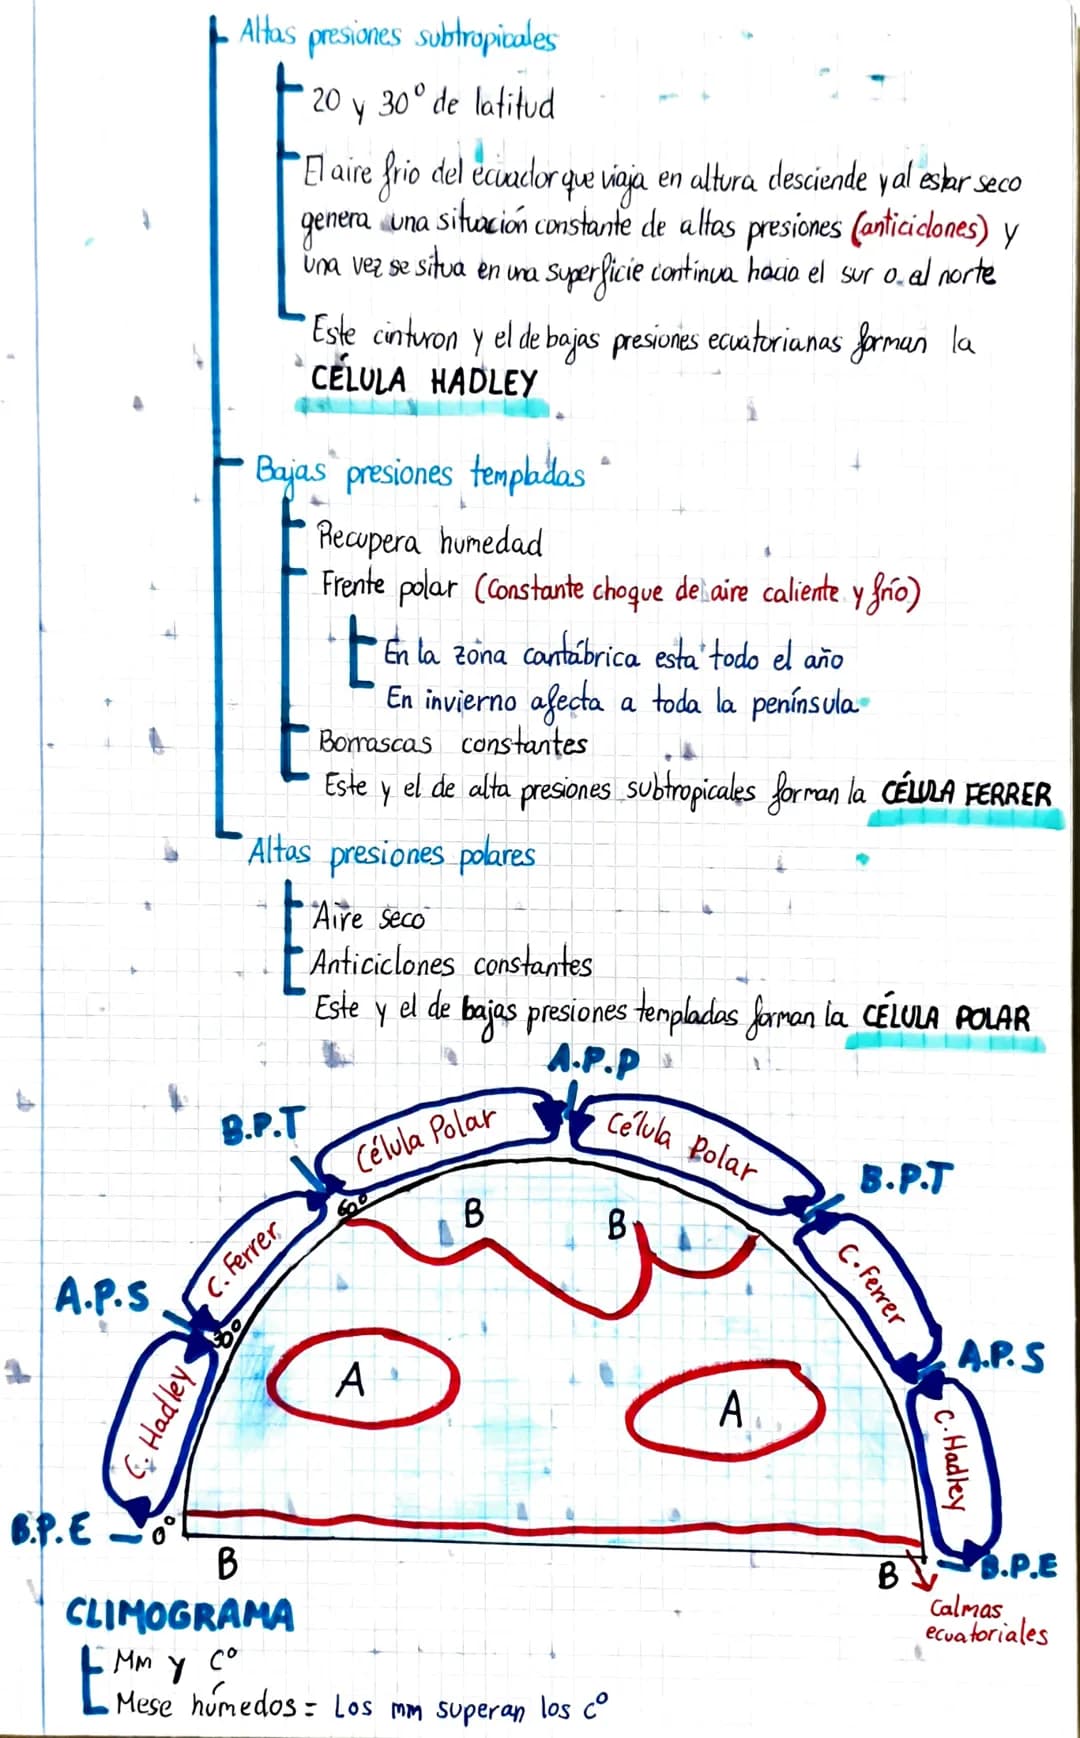 Altas presiones subtropicales
20 y 30° de latitud
El aire frio del ecuador que viaja en altura desciende y al estar seco
genera una situación constante de altas presiones (anticiclones) y
una vez se situa en una superficie continua hacia el sur o al norte
Este cinturon y el de bajas presiones ecuatorianas forman la
CÉLULA HADLEY
Bajas presiones templadas
Recupera humedad
Frente polar (Constante choque de aire caliente y frío)
En la zona cantábrica esta todo el año
En invierno afecta a toda la península
Borrascas constantes
Este y el de alta presiones subtropicales forman la CÉLULA FERRER
Altas presiones polares
Aire seco
Anticiclones constantes
Este y el de bajas presiones templadas forman la CÉLULA POLAR
A.P.P
B.P.T
Célula Polar
Célula Polar
B.P.T
60°
B
B
C. Ferrer
C. Ferrer
A.P.S
30°
A.P.S
A
A
C. Hadley
C. Hadley
B.P.E
0°
B
B
B.P.E
Calmas
ecuatoriales
CLIMOGRAMA
Mm y C°
Mese húmedos = Los mm superan los c°